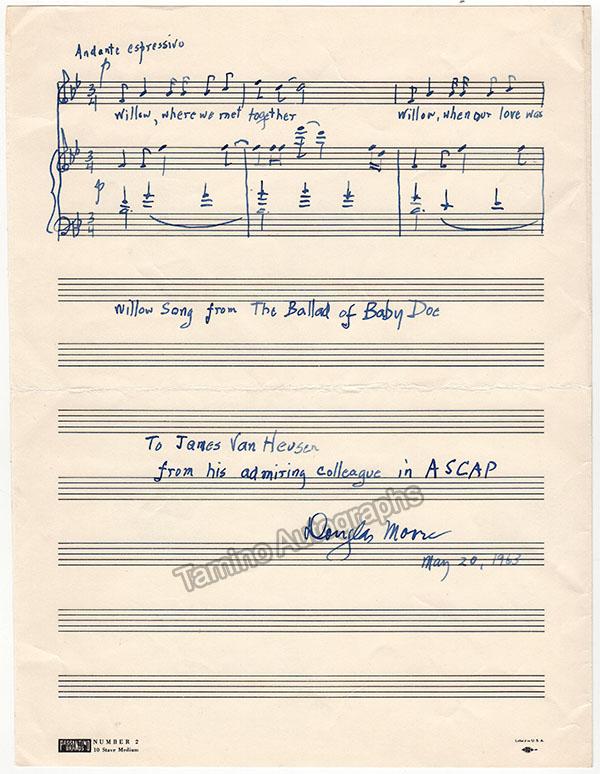 Andante espressivo
p
3/4
Willow, where we met together
Willow, when our love was
3/4
p
3/4
Willow Song from The Ballad of Baby Doe
To James Van Heusen
from his admiring colleague in ASCAP
Tamino Autographs
Douglas Moore
May 20, 1963
PASSANTINO
BRANDS
NUMBER 2
10 Stave Medium